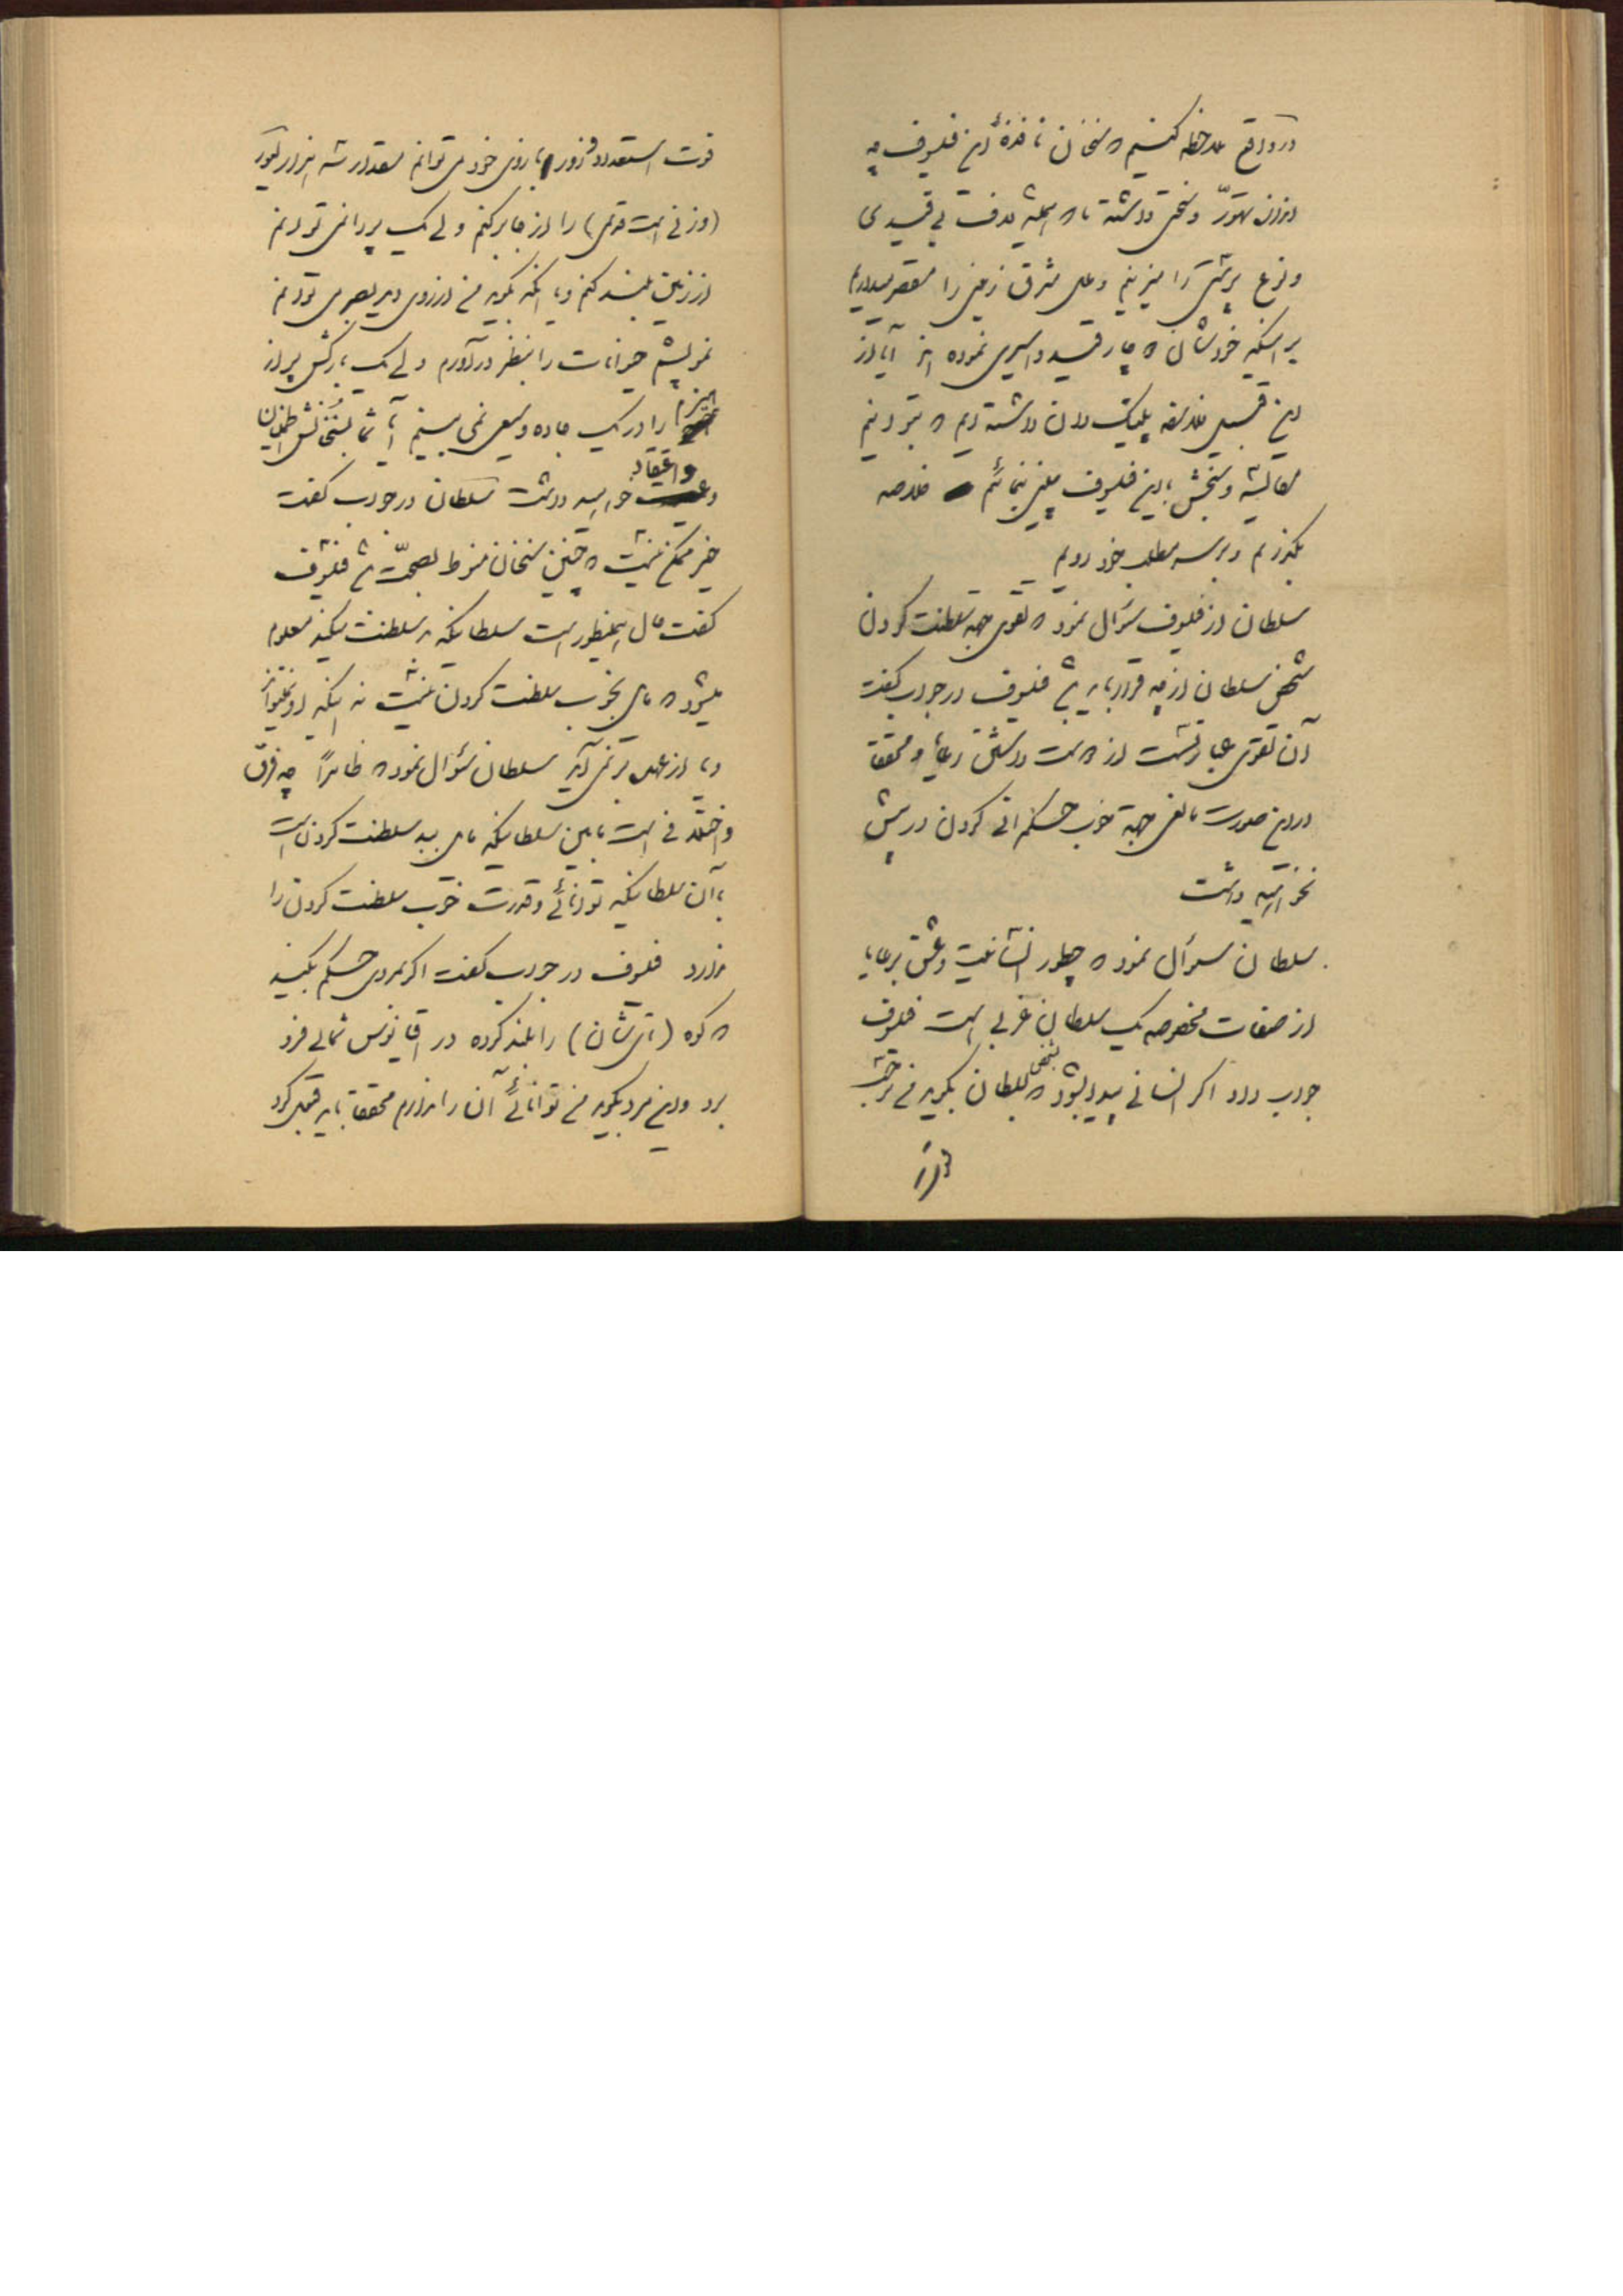 در واقع ملاحظه کنیم که سخنان نافذهٔ این فیلسوف چه
اندازه تهوّر و سختی داشته ما که همیشه بدقت بی قیدی
و نوع پرستی را میزنیم و ملل مشرق زمین را مقصر میداریم
بر اینکه خودشان که چار قید و اسیری نموده اند آیا از
این قبیل فلاسفه پلیتیک دان داشته ایم که بتوانیم
مقایسه و سنجش با این فیلسوف چینی بنمائیم خلاصه
بگذریم و بر سر مطلب خود رویم
سلطان از فیلسوف سؤال نمود که تقوی جهة سلطنت کردن
شخص سلطان از چه قرار باید باشد فیلسوف در جواب گفت
آن تقوی عبارتست از دوست داشتن رعایا و محققا
در این صورت مانعی جهة خوب حکمرانی کردن در پیش
نخواهید داشت
سلطان سؤال نمود که چطور انسانیت و عشق برعایا
از صفات مخصوصه یک سلطان غربی است فیلسوف
جواب داد اگر انسانی پیدا بشود که بشخص سلطان بگوید من بر حسب
قوت
قوت استعداد و زور بازوی خود می توانم مقدار سه هزار لیور
(وزنی است قدیمی) را از جا بر کنم ولی یک پر را نمی توانم
از زمین بلند کنم و یا آنکه بگوید من از روی دیر بصری می توانم
نمو پشم حیوانات را بنظر در آورم ولی یک بارکش پر از
هیزم را در یک جاده وسیعی نمی بینم آیا شما بسخنانش اطمینان
و اعتقاد خواهید داشت سلطان در جواب گفت
خیر ممکن نیست که چنین سخنان منوط بصحّت باشد فیلسوف
گفت حال اینطور است سلطانیکه بد سلطنت میکند معلوم
میشود که مایل بخوب سلطنت کردن نیست نه اینکه او نمیتواند
و یا از عهده بر نمی آید سلطان سؤال نمود که ظاهراً چه فرق
و اختلافی است مابین سلطانیکه مایل ببد سلطنت کردن است
با آن سلطانیکه توانائی و قدرت خوب سلطنت کردن را
ندارد فیلسوف در جواب گفت اگر بمردی حکم بکنید
که کوه (تای شان) را بلند کرده در اقیانوس شمالی فرو
برد و این مرد بگوید من توانائی آن را ندارم محققا باید قبول کرد